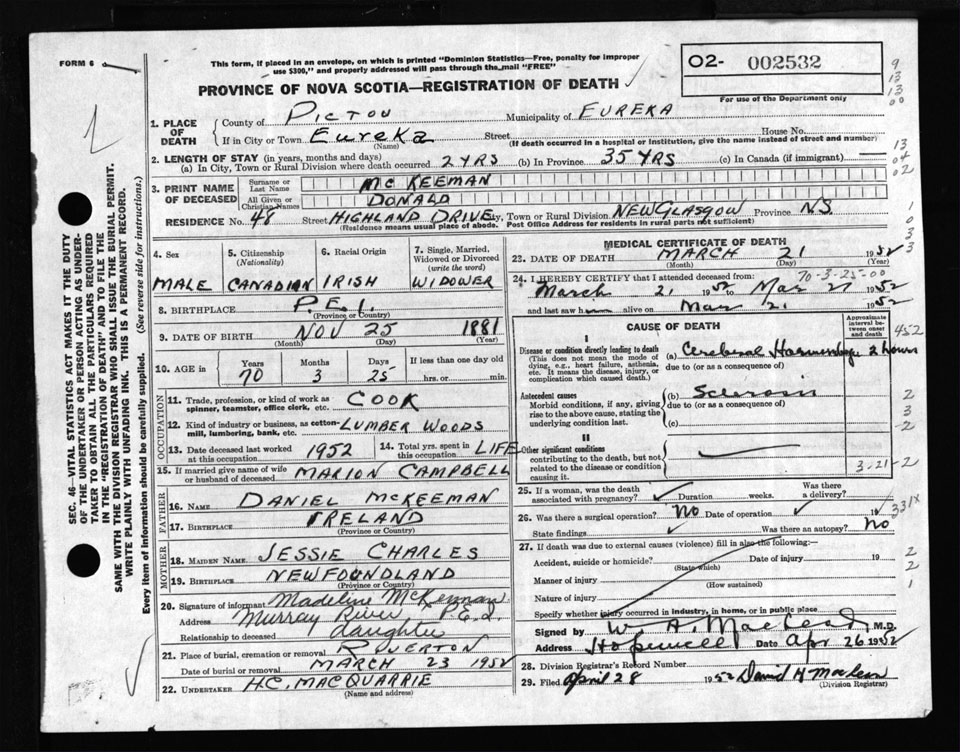 FORM 6
This form, if placed in an envelope, on which is printed "Dominion Statistics—Free, penalty for improper
use $300," and properly addressed will pass through the mail "FREE"
O2- 002532
For use of the Department only
PROVINCE OF NOVA SCOTIA—REGISTRATION OF DEATH
1. PLACE OF DEATH
County of PICTOU Municipality of EUREKA
If in City or Town Eureka Street House No.
(Name) (If death occurred in a hospital or institution, give the name instead of street and number)
2. LENGTH OF STAY (in years, months and days)
(a) In City, Town or Rural Division where death occurred 2 YRS (b) In Province 35 YRS (c) In Canada (if immigrant)
3. PRINT NAME OF DECEASED
Surname or Last Name MCKEEMAN
All Given or Christian Names DONALD
RESIDENCE No. 48 Street HIGHLAND DRIVE City, Town or Rural Division NEW GLASGOW Province NS
(Residence means usual place of abode. Post Office Address for residents in rural parts not sufficient)
4. Sex MALE
5. Citizenship (Nationality) CANADIAN
6. Racial Origin IRISH
7. Single, Married, Widowed or Divorced (write the word) WIDOWER
8. BIRTHPLACE P.E.I.
(Province or Country)
9. DATE OF BIRTH NOV 25 1881
(Month) (Day) (Year)
10. AGE in Years 70 Months 3 Days 25 If less than one day old hrs. or min.
OCCUPATION
11. Trade, profession, or kind of work as spinner, teamster, office clerk, etc. COOK
12. Kind of industry or business, as cotton-mill, lumbering, bank, etc. LUMBER WOODS
13. Date deceased last worked at this occupation 1952 14. Total yrs. spent in this occupation LIFE
15. If married give name of wife or husband of deceased MARION CAMPBELL
FATHER
16. NAME DANIEL MCKEEMAN
17. BIRTHPLACE IRELAND
(Province or Country)
MOTHER
18. MAIDEN NAME JESSIE CHARLES
19. BIRTHPLACE NEWFOUNDLAND
(Province or Country)
20. Signature of informant Madeline McKeeman
Address Murray River P.E.I.
Relationship to deceased daughter
21. Place of burial, cremation or removal RIVERTON
Date of burial or removal MARCH 23 1952
22. UNDERTAKER H.C. MACQUARRIE
(Name and address)
MEDICAL CERTIFICATE OF DEATH
23. DATE OF DEATH MARCH 21 1952
(Month) (Day) (Year)
70-3-25-00
24. I HEREBY CERTIFY that I attended deceased from:
March 21 1952 to Mar 21 1952
and last saw him alive on Mar 21 1952
CAUSE OF DEATH
Approximate interval between onset and death
I
Disease or condition directly leading to death
(This does not mean the mode of dying, e.g., heart failure, asthenia, etc. It means the disease, injury, or complication which caused death.)
(a) Cerebral Hemorrhage 2 hours
due to (or as a consequence of)
Antecedent causes
Morbid conditions, if any, giving rise to the above cause, stating the underlying condition last.
(b) Sclerosis
due to (or as a consequence of)
(c)
II
Other significant conditions
contributing to the death, but not related to the disease or condition causing it.
3-21-2
25. If a woman, was the death associated with pregnancy? Duration weeks. Was there a delivery?
26. Was there a surgical operation? No Date of operation 19
State findings Was there an autopsy? No
27. If death was due to external causes (violence) fill in also the following:
Accident, suicide or homicide? Date of injury 19
(State which)
Manner of injury
(How sustained)
Nature of injury
Specify whether injury occurred in industry, in home, or in public place
Signed by W. A. MacLeod M.D.
Address Hopewell Date Apr 26 1952
28. Division Registrar's Record Number
29. Filed April 28 1952 David H MacLean
(Division Registrar)
9
13
13
00
13
04
02
1
0
3
3
452
2
3
2
331X
2
2
1
SEC. 46—VITAL STATISTICS ACT MAKES IT THE DUTY
OF THE UNDERTAKER OR PERSON ACTING AS UNDER-
TAKER TO OBTAIN ALL THE PARTICULARS REQUIRED
IN THE "REGISTRATION OF DEATH" AND TO FILE THE
SAME WITH THE DIVISION REGISTRAR WHO SHALL ISSUE THE BURIAL PERMIT.
WRITE PLAINLY WITH UNFADING INK. THIS IS A PERMANENT RECORD.
Every item of information should be carefully supplied. (See reverse side for instructions.)